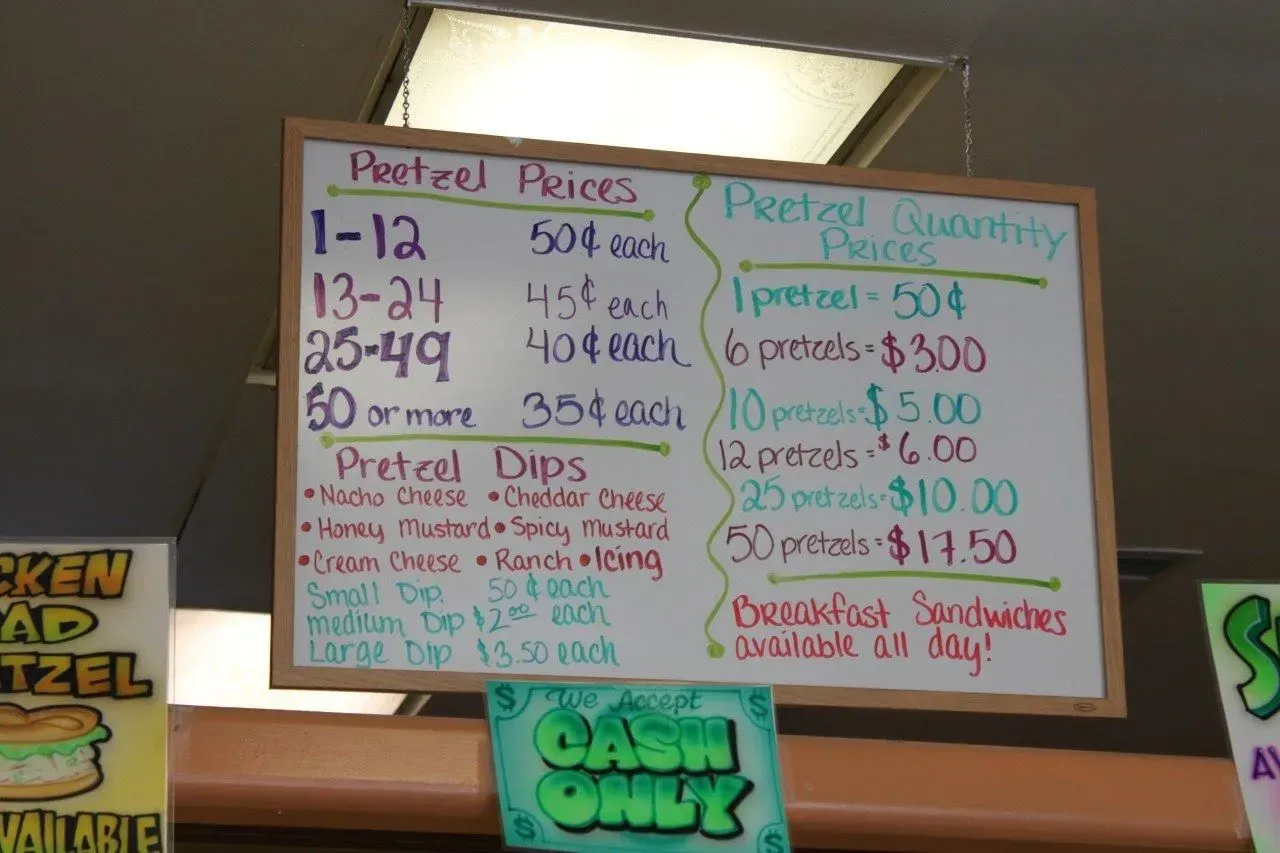 Pretzel Prices
1-12 50¢ each
13-24 45¢ each
25-49 40¢ each
50 or more 35¢ each
Pretzel Dips
• Nacho Cheese • Cheddar Cheese
• Honey Mustard • Spicy Mustard
• Cream Cheese • Ranch • Icing
Small Dip 50¢ each
medium Dip $2.00 each
Large Dip $3.50 each
Pretzel Quantity
Prices
1 pretzel = 50¢
6 pretzels = $3.00
10 pretzels = $5.00
12 pretzels = $6.00
25 pretzels = $10.00
50 pretzels = $17.50
Breakfast Sandwiches
available all day!
$ We Accept $
CASH
ONLY
$ $
CKEN
AD
TZEL
VAILABLE